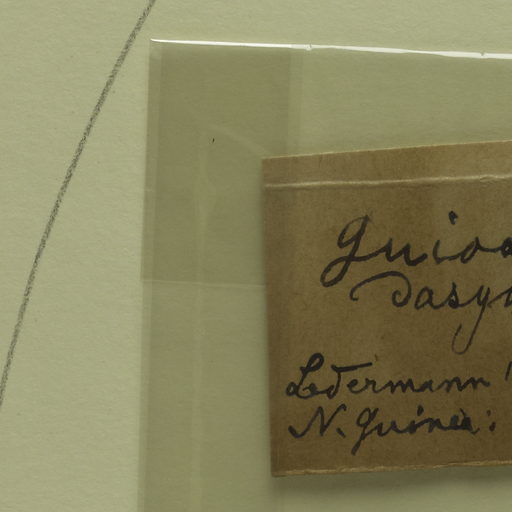 Guioa
dasy
Ledermann
N. Guinea: